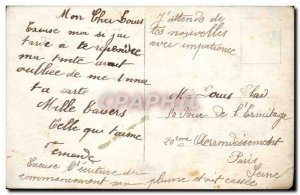 Mon Cher Louis
Excuse moi si j'ai
tardé a te repondre
ma tante avait
oubliée de me
ta carte
Mille baisers
Celle qui t'aime
Fernande
Excuse l'écriture du
commencement ma plume etait cassée
J'attends de
tes nouvelles
avec impatience
Mr Louis
Rue de l'Ermitage
20eme Arrondissement
Paris
Seine
CPRAPHIL